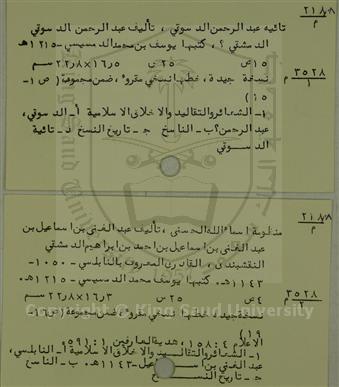 ٢١٨٫٨
م
تائيه عبد الرحمن الدسوقي ، تأليف عبد الرحمن الدسوقي
الدمشقي ؟ ، كتبها يوسف بن محمد الدسيسي -١٢١٥هـ
١٥ ص ٢٥ س ١٦٫٥×٢٢٫٨ سم
٣٥٢٨
١ م
نسخة جيدة ، خطها نسخي مقروء ، ضمن مجموعة ( ص١-
١٥ )
١- الشعائر والتقاليد والاخلاق الاسلامية أ - الدسوقي ،
عبد الرحمن ؟ ب - الناسخ جـ - تاريخ النسخ د - تائية
الدسوقي
٢١٨٫٨
م
منظومة اسماء الله الحسنى ، تأليف عبد الغني بن اسماعيل بن
عبد الغني بن اسماعيل بن احمد بن ابراهيم الدمشقي
النقشبندي ، القادري المعروف بالنابلسي ١٠٥٠-
١١٤٣هـ. كتبها يوسف محمد الدسيسي -١٢١٥هـ.
٤ ص ٢٥ س ١٦٫٣×٢٢٫٨ سم
٣٥٢٨
٢ م
نسخة جيدة ، خطها نسخي مقروء ، ضمن مجموعة ( ص١٦-
١٩ )
الاعلام ١٥٨:٤ ، هدية العارفين ٥٩١:١
١- الشعائر والتقاليد والاخلاق الاسلامية أ - النابلسي ،
عبد الغني بن اسماعيل -١١٤٣هـ ب - الناسخ
جـ - تاريخ النسخ
Copyright © King Saud University